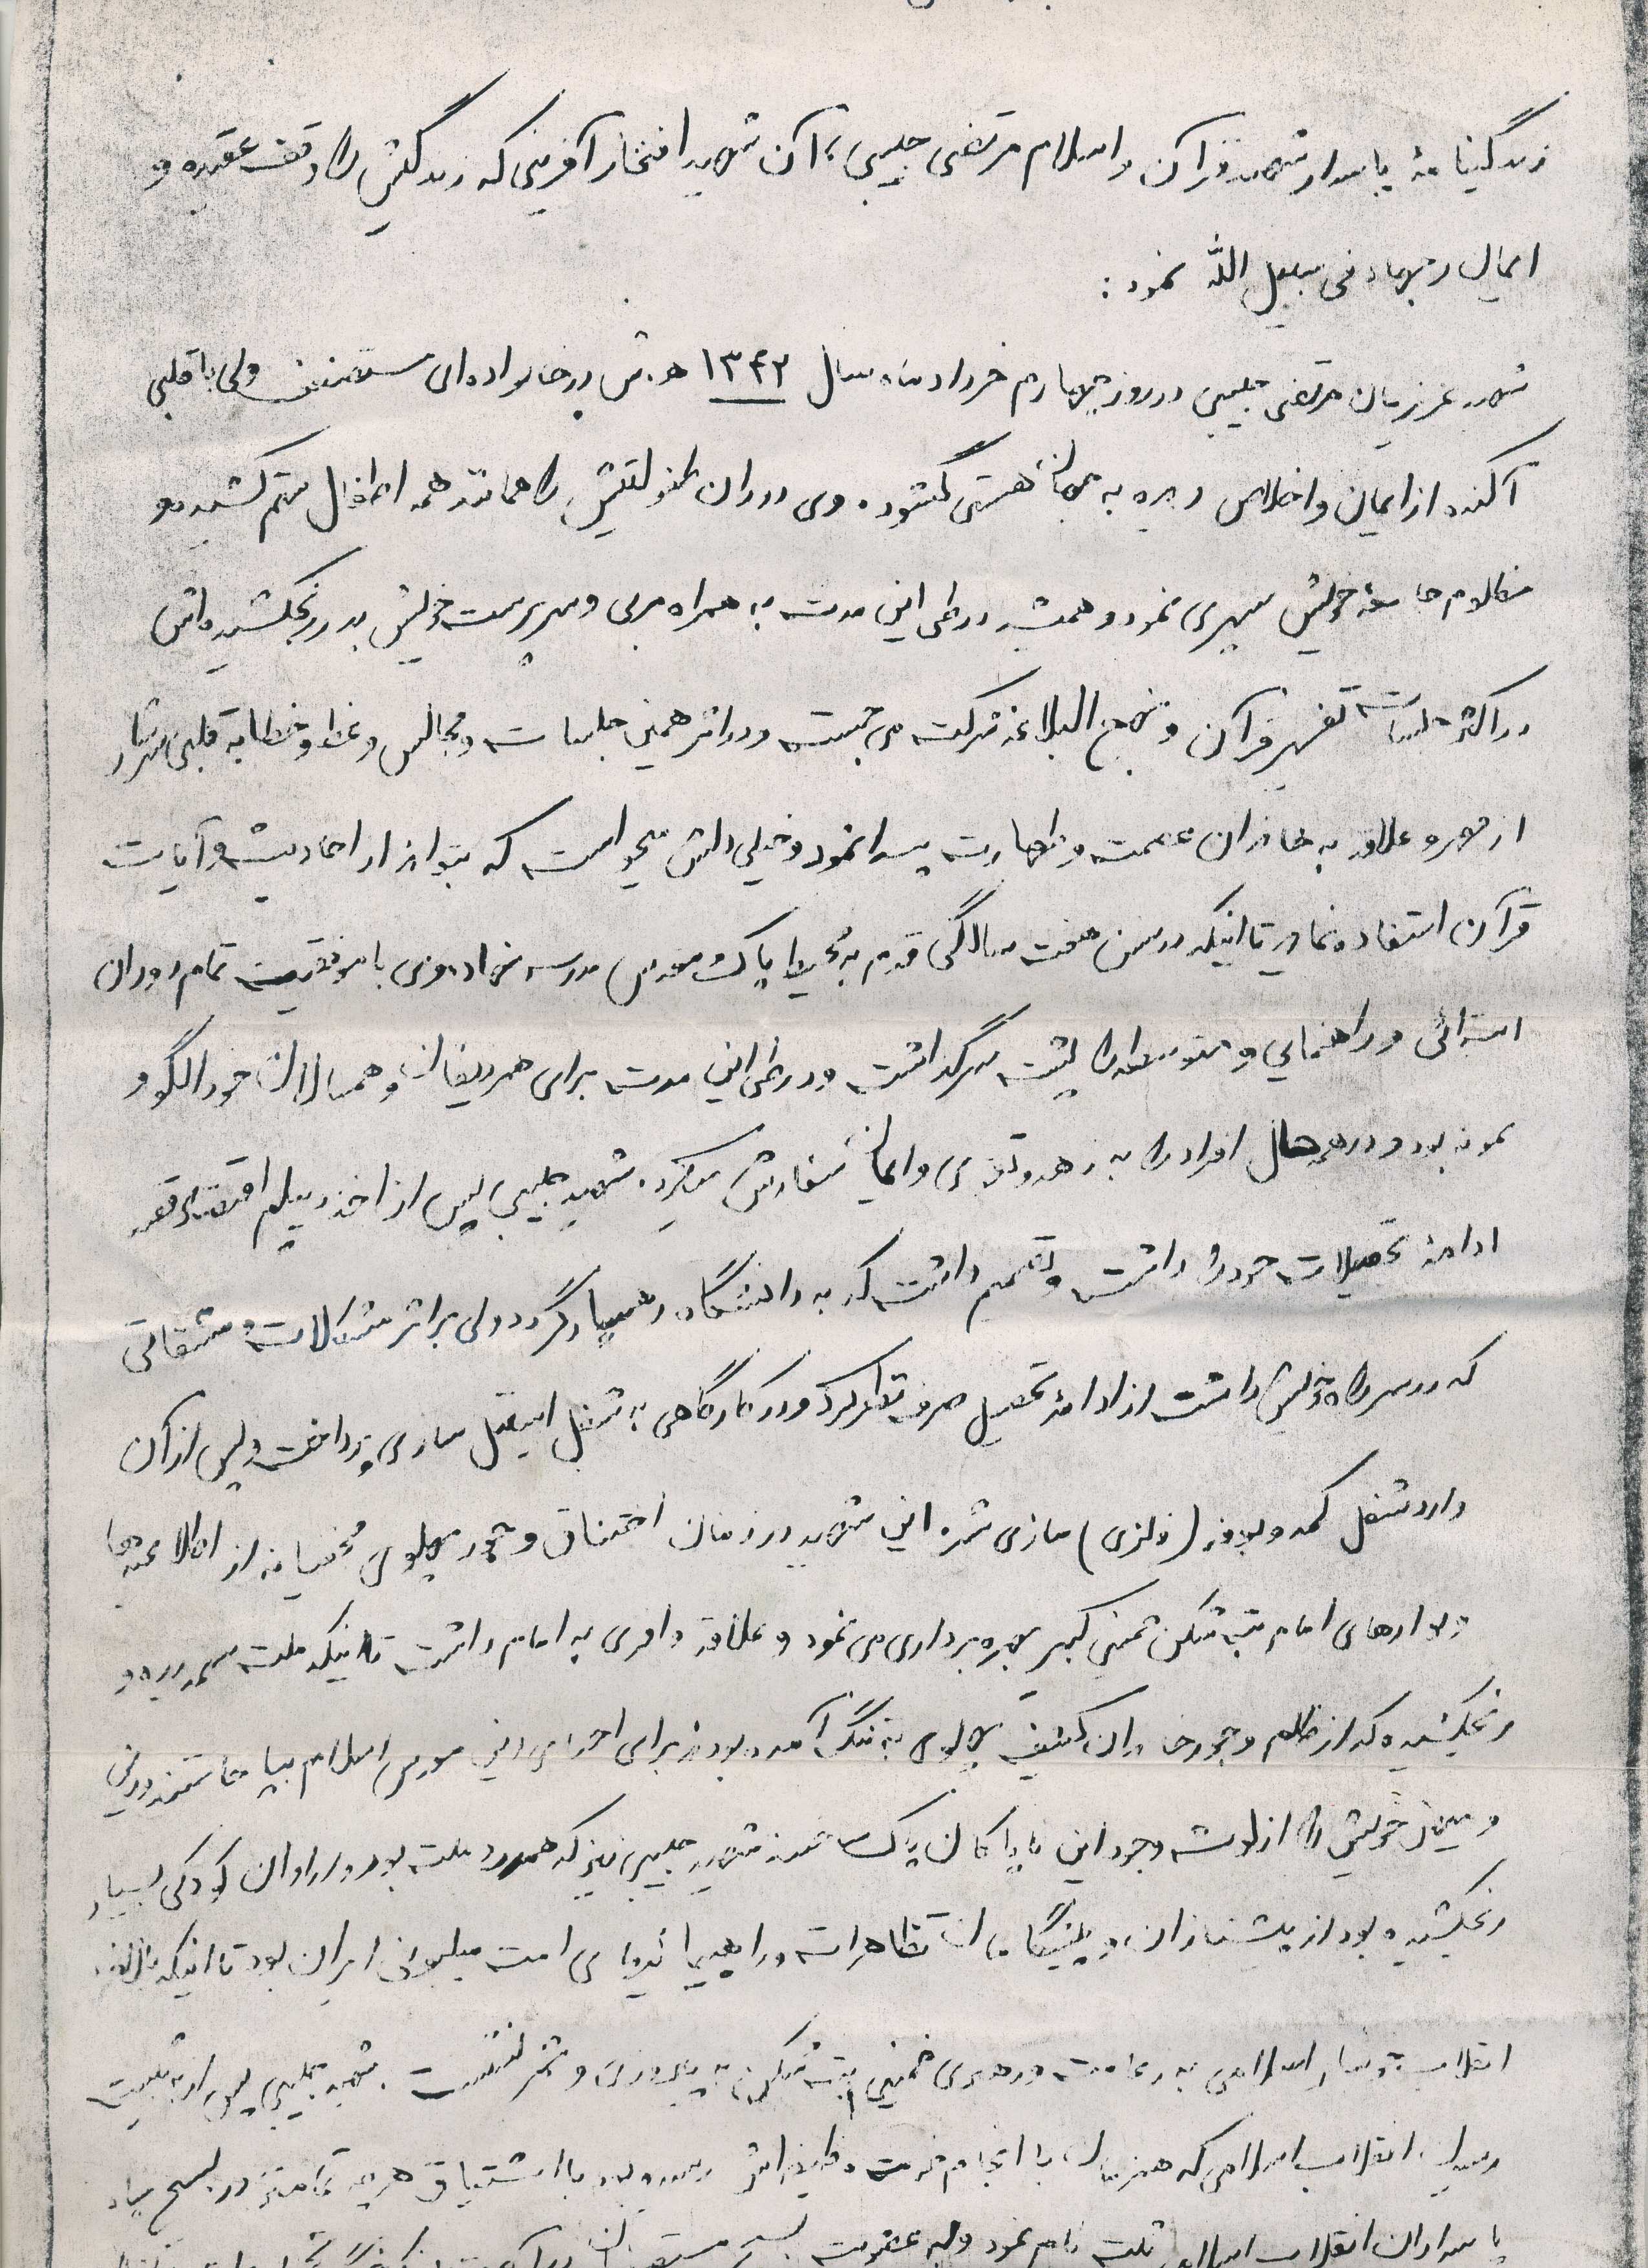 زندگینامهٔ پاسدار شهید قرآن و اسلام مرتضی حبیبی، آن شهید افتخار آفرینی که زندگیش را وقف عقیده و
ایمان و جهاد فی سبیل الله نمود:
شهید عزیزمان مرتضی حبیبی در روز چهارم خرداد ماه سال ۱۳۴۲ ه.ش در خانواده‌ای مستضعف ولی با قلبی
آکنده از ایمان و اخلاص دیده به جهان هستی گشود. وی دوران طفولیتش را همانند همه اطفال ستم کشیده و
مظلوم جامعهٔ خویش سپری نمود و همیشه در طی این مدت به همراه مربی و سرپرست خویش پدر رنجکشیده‌اش
در اکثر جلسات تفسیر قرآن و نهج البلاغه شرکت می‌جست و در اثر همین جلسات و مجالس وعظ و خطابه قلبی سرشار
از مهر و علاقه به خاندان عصمت و طهارت پیدا نمود و خیلی دلش میخواست که بتواند از احادیث و آیات
قرآن استفاده نماید تا اینکه در سن هفت سالگی قدم به محیط پاک و مقدس مدرسه نهاد. وی با موفقیت تمام دوران
ابتدائی و راهنمایی و متوسطه را پشت سر گذاشت و در طی این مدت برای همردیفان و همسالان خود الگو و
نمونه بود و در همه حال افراد را به زهد و تقوی و ایمان سفارش میکرد. شهید حبیبی پس از اخذ دیپلم اقتصاد قصد
ادامهٔ تحصیلات خود را داشت و تصمیم داشت که به دانشگاه رهسپار گردد ولی بر اثر مشکلات و مشقاتی
که در سر راه خویش داشت از ادامهٔ تحصیل صرف نظر کرد و در کارگاهی به شغل استیل سازی پرداخت و پس از آن
وارد شغل کمد و بوفه (فلزی) سازی شد. این شهید در زمان اختناق و جور پهلوی مخفیانه از اطلاعیه‌ها
و نوارهای امام بت شکن خمینی کبیر بهره برداری می نمود و علاقهٔ وافری به امام داشت تا اینکه ملت ستمدیده و
رنجکشیده که از ظلم و جور خاندان کثیف پهلوی به تنگ آمده بودند برای احیای دین مبین اسلام بپا خاستند و دین
و میهن خویش را از لوث وجود این ناپاکان پاک ساختند شهید حبیبی نیز که همدرد ملت بود و در اوان کودکی بسیار
رنجکشیده بود از پیشتازان و پیشگامان تظاهرات و راهپیمائیهای امت میلیونی ایران بود تا اینکه بالاخره
انقلاب خونبار اسلامی به زعامت و رهبری خمینی بت شکن به پیروزی و ثمر نشست. شهید حبیبی پس از تثبیت
انقلاب اسلامی که همزمان با انجام خدمت وظیفه‌اش رسیده بود با اشتیاق هر چه تمامتر در بسیج سپاه
پاسداران انقلاب اسلامی ثبت نام نمود و به عضویت بسیج